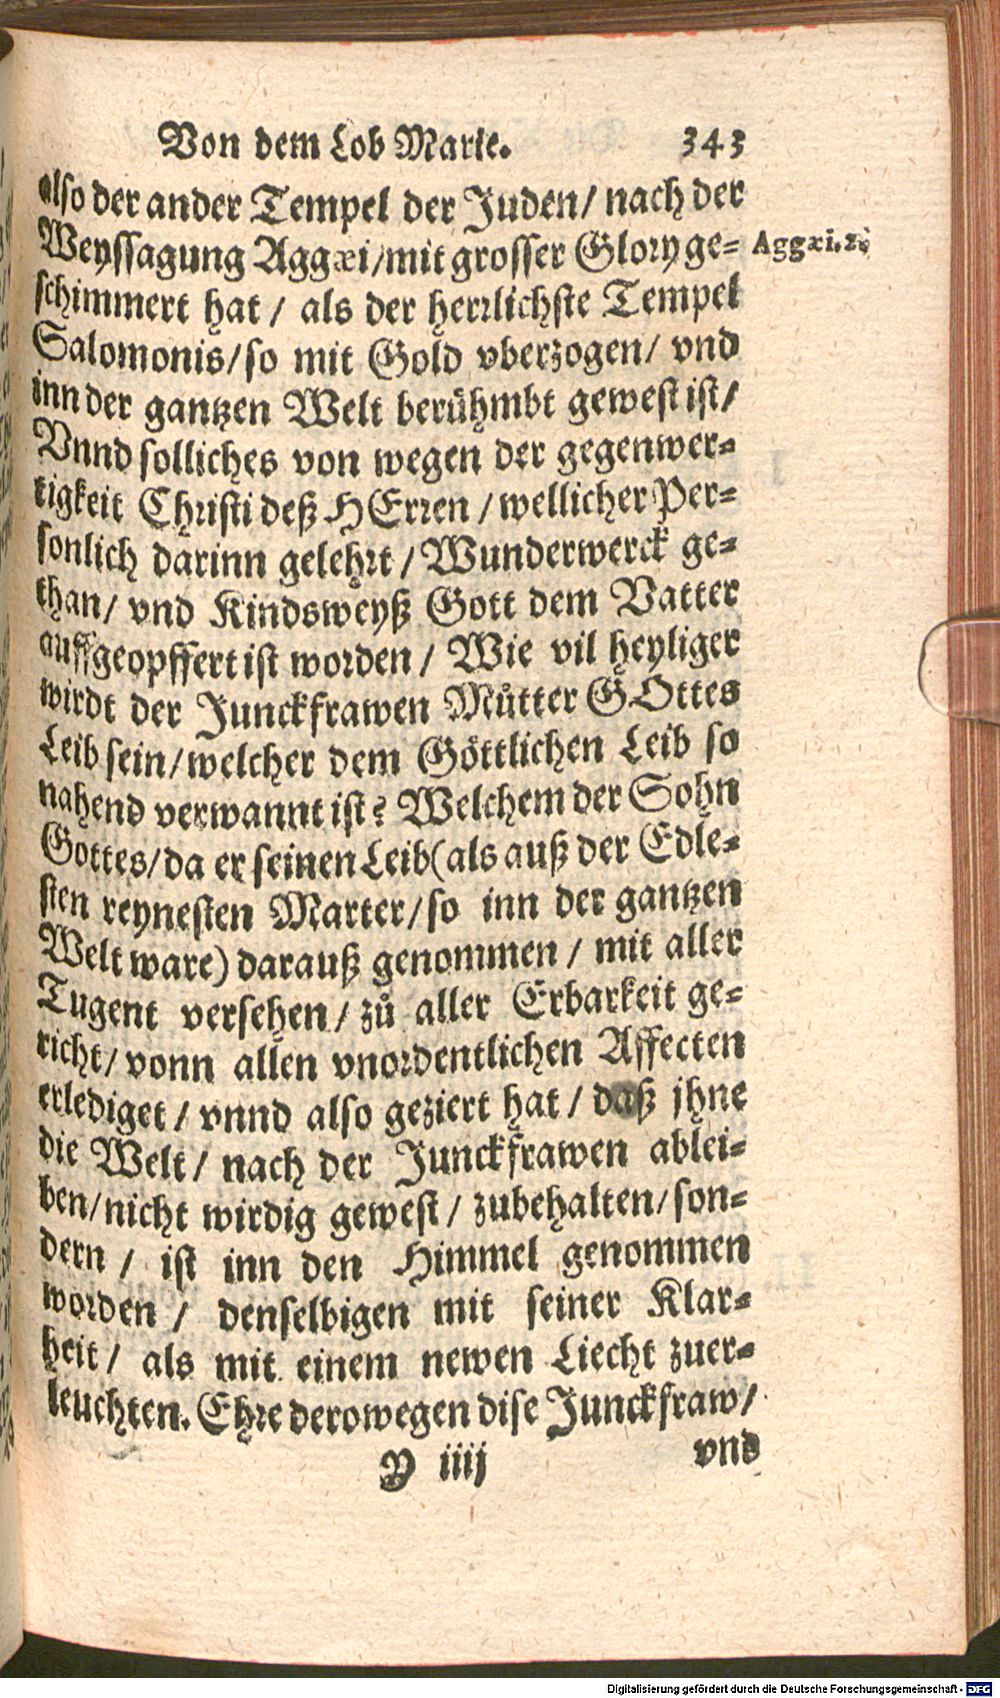 Von dem Lob Marie. 343
also der ander Tempel der Juden/ nach der
Weyssagung Aggæi/mit grosser Glory ge= Aggæi. 2.
schimmert hat / als der herrlichste Tempel
Salomonis/so mit Gold vberzogen/ vnd
inn der gantzen Welt berühmbt gewest ist/
Vnnd solliches von wegen der gegenwer=
tigkeit Christi deß HErren / wellicher Per=
sonlich darinn gelehrt / Wunderwerck ge=
than/ vnd Kindsweyß Gott dem Vatter
auffgeopffert ist worden / Wie vil heyliger
wirdt der Junckfrawen Můtter GOttes
Leib sein/welcher dem Göttlichen Leib so
nahend verwannt ist? Welchem der Sohn
Gottes/da er seinen Leib(als auß der Edle=
sten reynesten Marter/so inn der gantzen
Welt ware) darauß genommen / mit aller
Tugent versehen/ zů aller Erbarkeit ge=
richt/ vonn allen vnordentlichen Affecten
erlediget / vnnd also geziert hat / daß jhne
die Welt / nach der Junckfrawen ablei=
ben/nicht wirdig gewest / zubehalten/ son=
dern / ist inn den Himmel genommen
worden / denselbigen mit seiner Klar=
heit / als mit einem newen Liecht zuer=
leuchten. Ehre derowegen dise Junckfraw/
Y iiij vnd
Digitalisierung gefördert durch die Deutsche Forschungsgemeinschaft - DFG